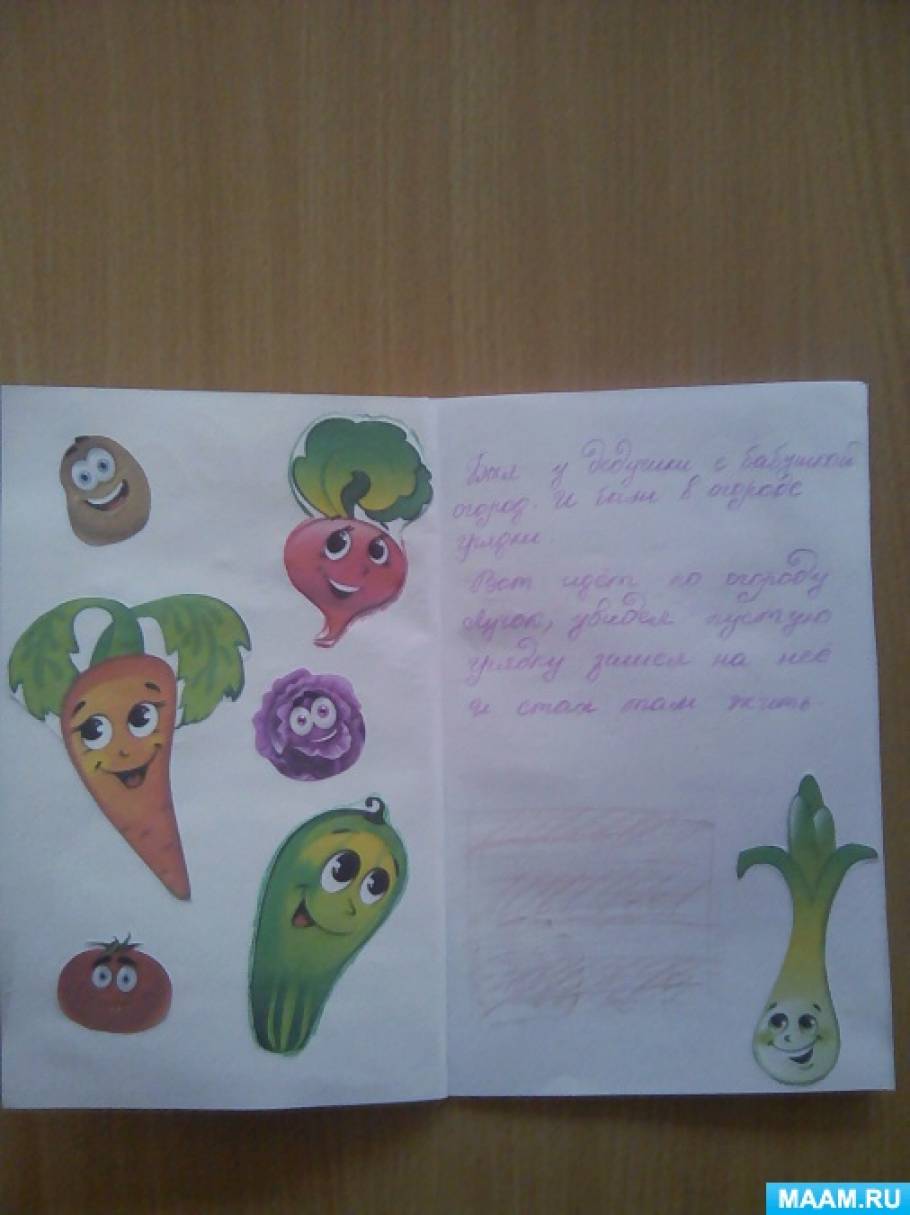 Был у дедушки с бабушкой
огород. И были в огороде
грядки.
Вот идёт по огороду
Лучок, увидел пустую
грядку залез на неё
и стал там жить.
MAAM.RU